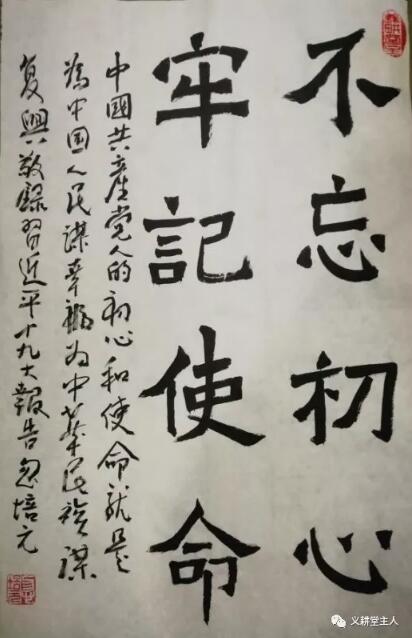 不忘初心
牢記使命
中國共產党人的初心和使命就是
為中国人民謀幸福为中華民族谋
复興敬録習近平十九大報告忽培元
义耕堂主人